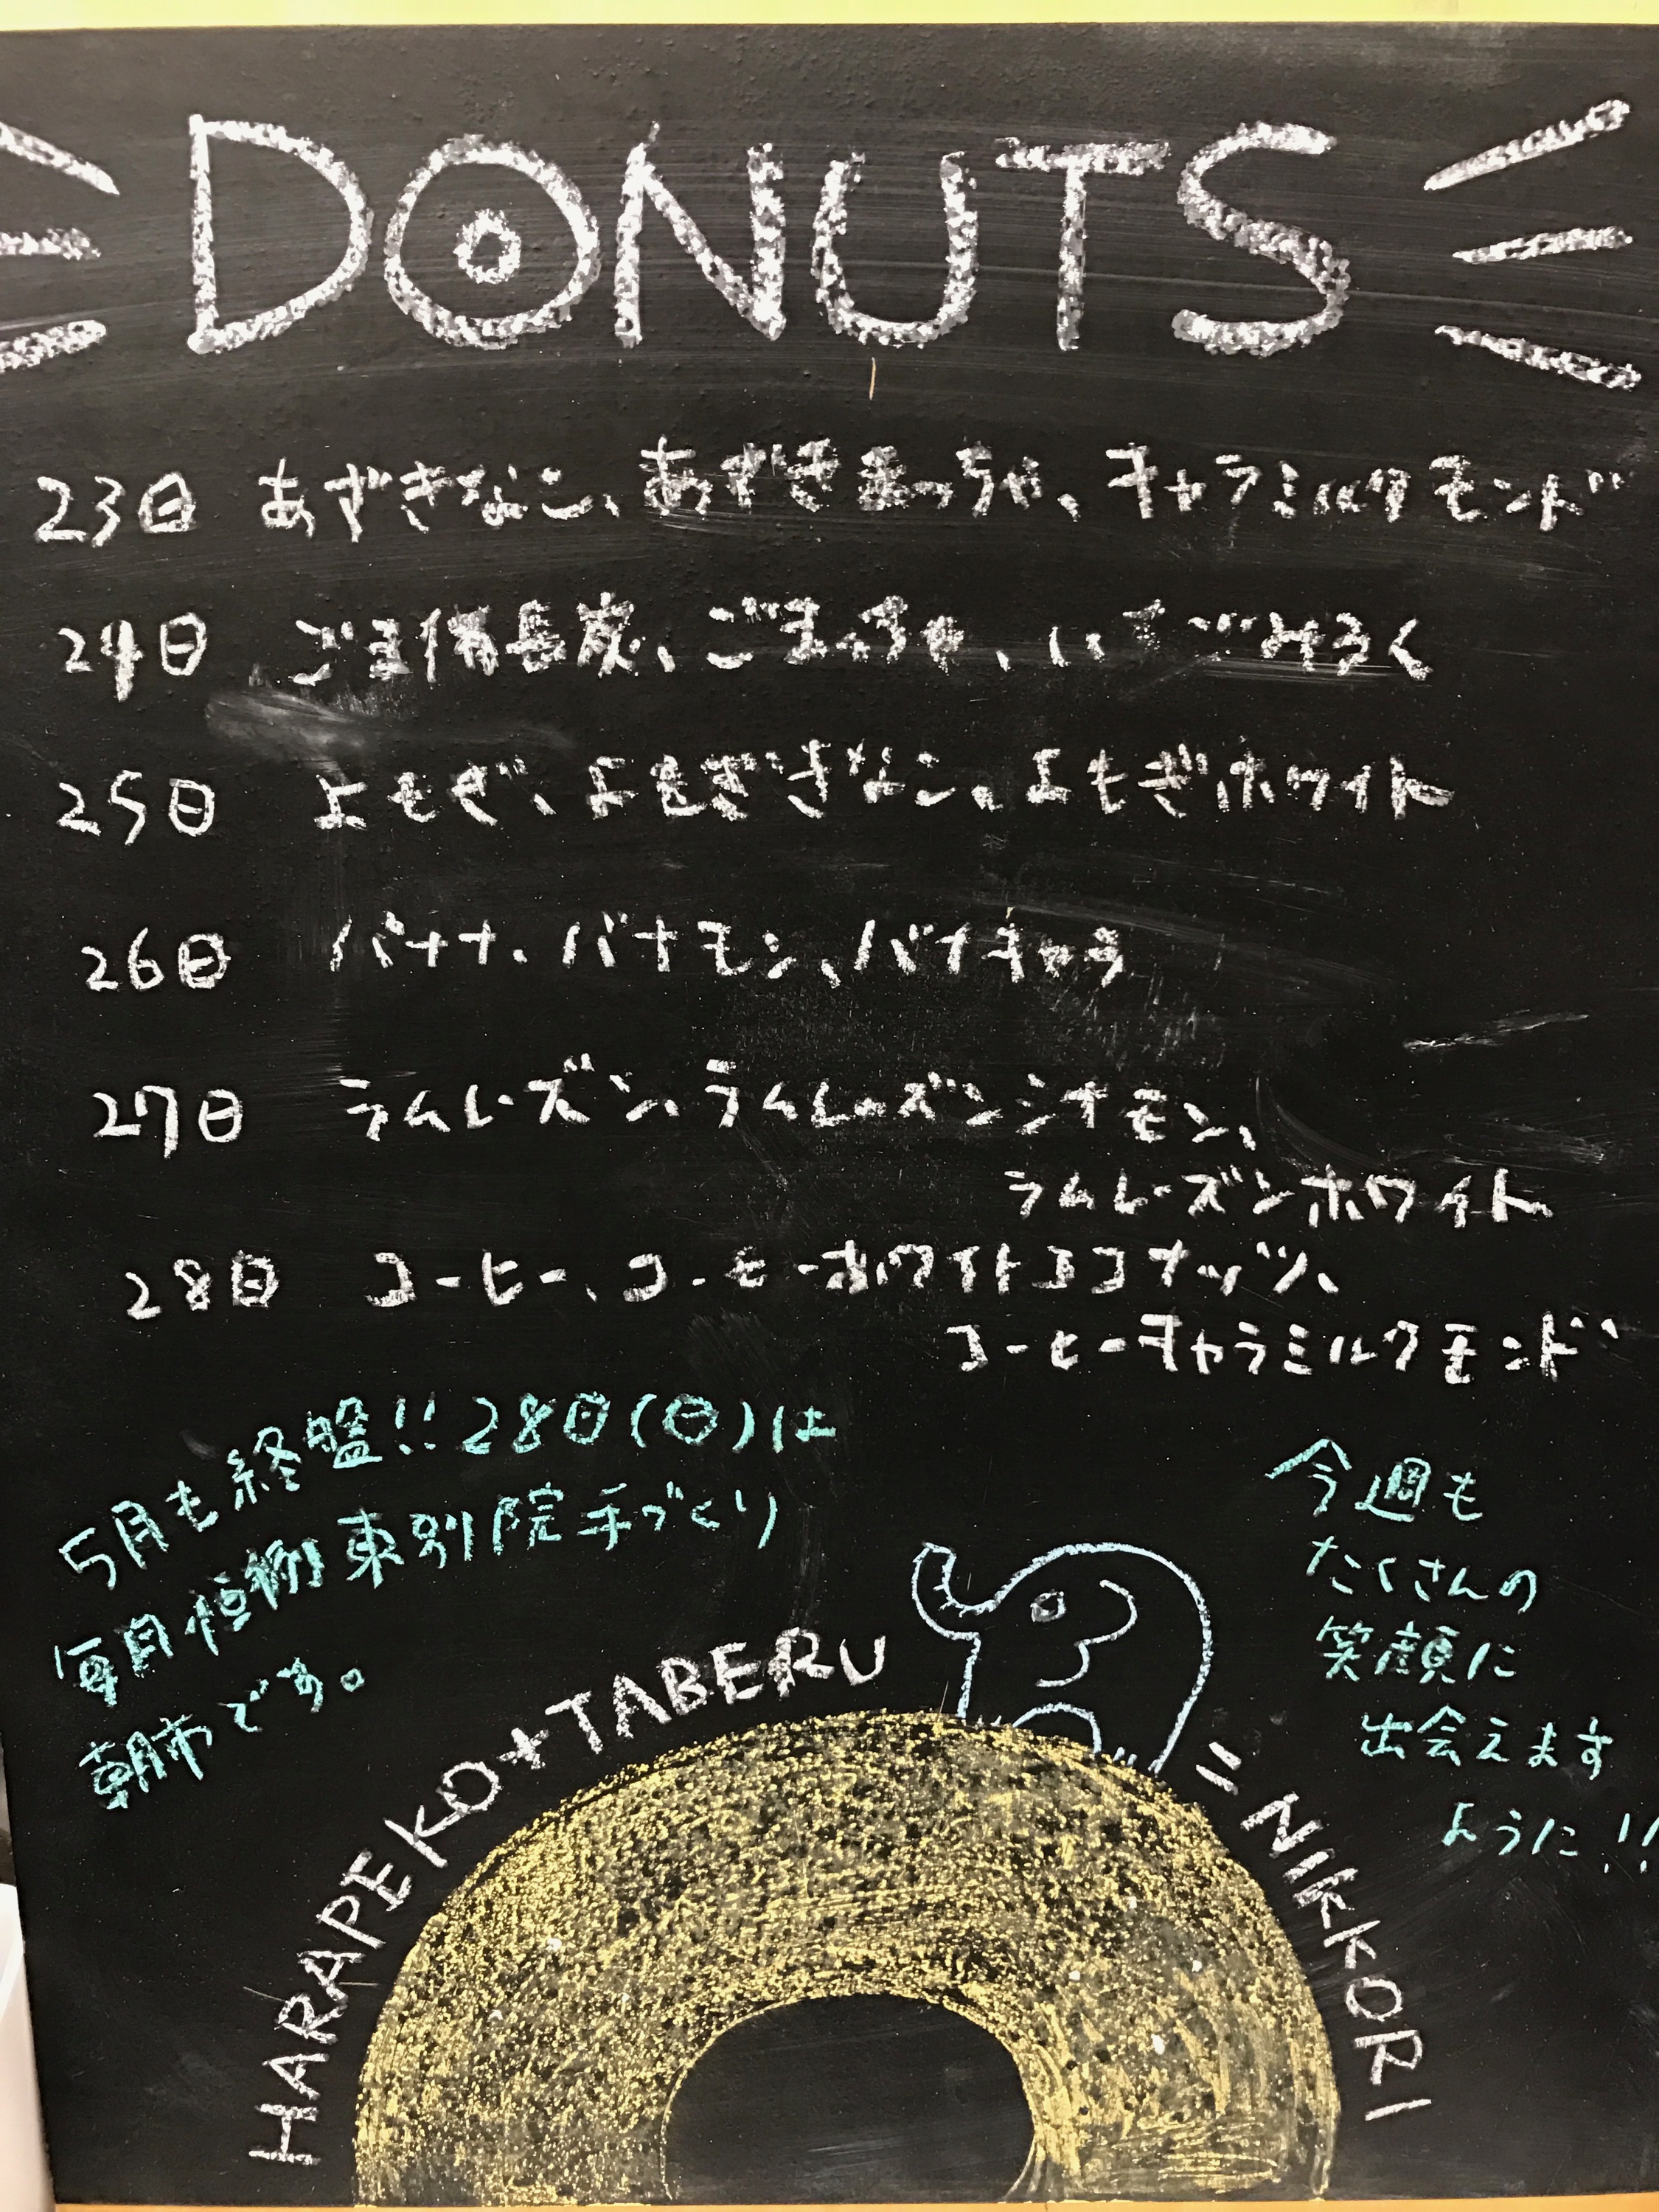 DONUTS
23日 あずきなこ、あずきまっちゃ、キャラミルクモンド
24日 ごま備長炭、ごまっちゃ、いちごみるく
25日 よもぎ、よもぎきなこ、よもぎホワイト
26日 バナナ、バナモン、バナキャラ
27日 ラムレーズン、ラムレーズンシナモン、
ラムレーズンホワイト
28日 コーヒー、コーヒーホワイトココナッツ、
コーヒーキャラミルクモンド
5月も終盤!!28日(日)は
毎月恒例東別院手づくり
朝市です。
今週も
たくさんの
笑顔に
出会えます
ように!!
HARAPEKO+TABERU=NIKKORI